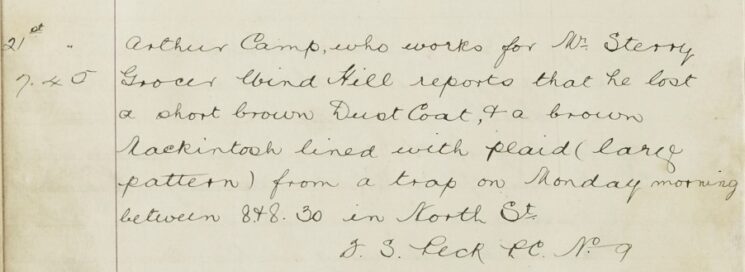 21st " Arthur Camp, who works for Mr. Sterry
7.45 Grocer Wind Hill reports that he lost
a short brown Dust Coat, & a brown
Mackintosh lined with plaid (large
pattern) from a trap on Monday morning
between 8 & 8.30 in North St.
J. S. Peck P.C. No 9